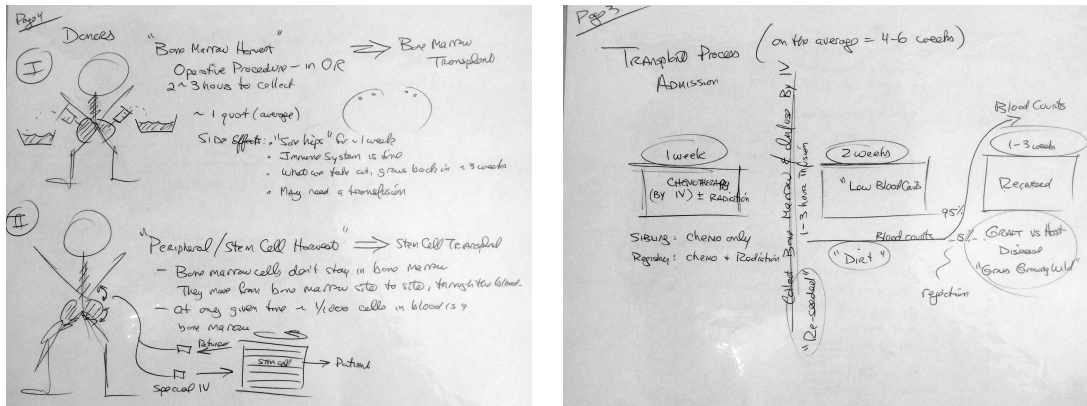 Page 4
Donors
I
"Bone Marrow Harvest"
Bone Marrow
Transplant
Operative Procedure - in OR
2~3 hours to collect
~ 1 quart (average)
Side Effects: • "Sore hips" for ~1 week
• Immune System is fine
• What we take out, grows back in < 3 weeks
• May need a transfusion
II
"Peripheral/Stem Cell Harvest"
Stem Cell Transplant
- Bone marrow cells don't stay in bone marrow
They move from bone marrow site to site, through the blood.
- at any given time ~ 1/1000 cells in blood is a
bone marrow
Return
Stem Cell
Patient
Special IV
Page 3
Transplant Process
(on the average = 4-6 weeks)
Admission
1 week
Chemotherapy
(By IV) ± Radiation
Sibling: chemo only
Registry: chemo + Radiation
Collect Bone Marrow & infuse By IV
1-3 hour infusion
"Re-seeded"
2 weeks
"Low Blood Counts
Blood counts
"Dirt"
Blood Counts
1-3 weeks
Recovered
95%
5%
rejection
Graft vs Host
Disease
"Grass Growing Wild"